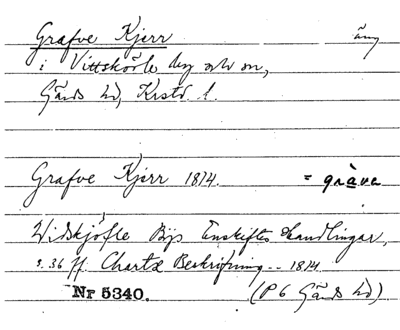 Grafve Kjerr äng
i Vittskövle by och sn,
Gärds hd, Krstd l.
Grafve Kjerr 1814. = gràva
Widskjöfle Bys Enskiftes Handlingar,
s. 36 ff. Chartæ Beskrifning -- 1814.
Nr 5340. (P 6 Gärds hd)